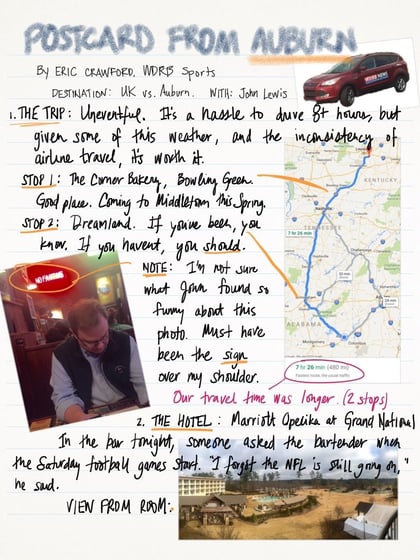 POSTCARD FROM AUBURN
By ERIC CRAWFORD, WDRB Sports
DESTINATION: UK vs. Auburn. WITH: John Lewis
1. THE TRIP: Uneventful. It's a hassle to drive 8+ hours, but
given some of this weather, and the inconsistency of
airline travel, it's worth it.
STOP 1: The Corner Bakery, Bowling Green.
Good place. Coming to Middletown this Spring.
STOP 2: Dreamland. If you've been, you
know. If you haven't, you should.
KENTUCKY
7 hr 26 min
TENNESSEE
ALABAMA
Montgomery
Columbus
7 hr 26 min (480 mi)
Fastest route, the usual traffic
NO PARKING
NOTE: I'm not sure
what John found so
funny about this
photo. Must have
been the sign
over my shoulder.
Our travel time was longer. (2 stops)
2. THE HOTEL: Marriott Opelika at Grand National
In the bar tonight, someone asked the bartender when
the Saturday football games start. "I forgot the NFL is still going on,"
he said.
VIEW FROM ROOM: